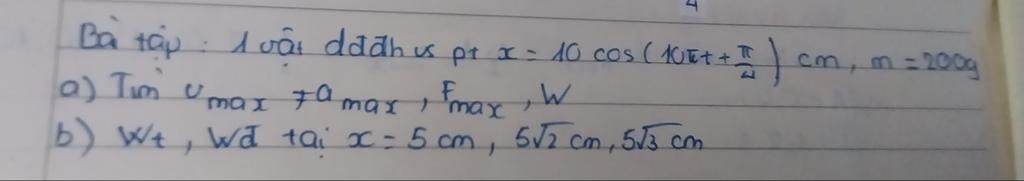 4
Bài tập : 1 vật dđđh vs pt x = 10 cos(10πt + π/4) cm, m = 200g
a) Tìm vmax, amax, Fmax, W
b) Wt, Wđ tại x = 5 cm, 5√2 cm, 5√3 cm